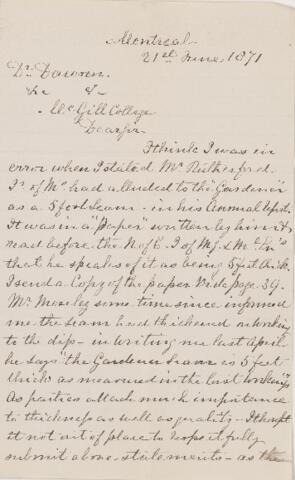 Montreal
21st June, 1871
Dr. Dawson
&c &
McGill College
Dear Sir
I think I was in
error when I stated Mr Rutherford
of Ms had alluded to the "Gardener"
as a 5 foot Seam - in his Annual
It was in a "Paper" written by him &
read before the N of E I of M
that he speaks of it as being 5 feet thick.
I send a Copy of the paper Vide page 39.
Mr Moseley some time since informed
me the Seam had thickened in working
to the dip - in writing me last April
he says "the Gardener Seam is 5 feet
thick as measured in the last
As parties attach much importance
to thickness as well as quality - I thought
it not out of place to respectfully
submit above statements - as the